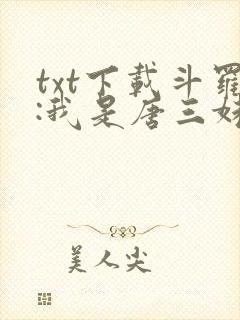 txt下載斗羅
:我是唐三
美人尖